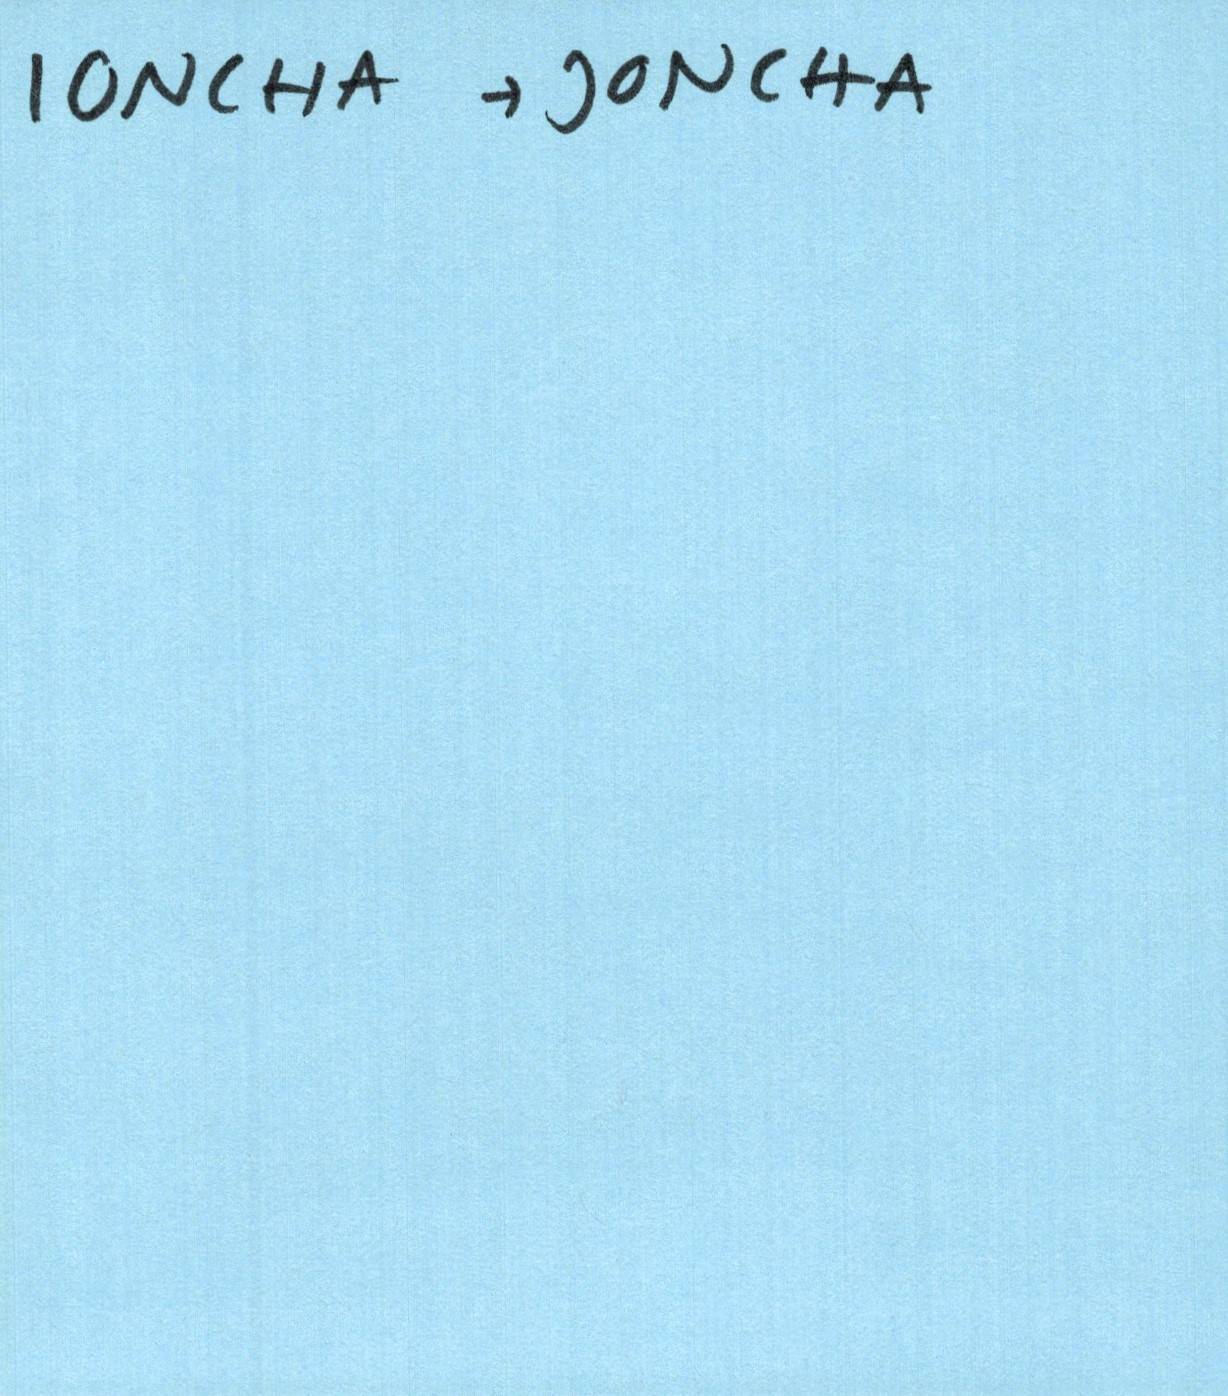 IONCHA → JONCHA